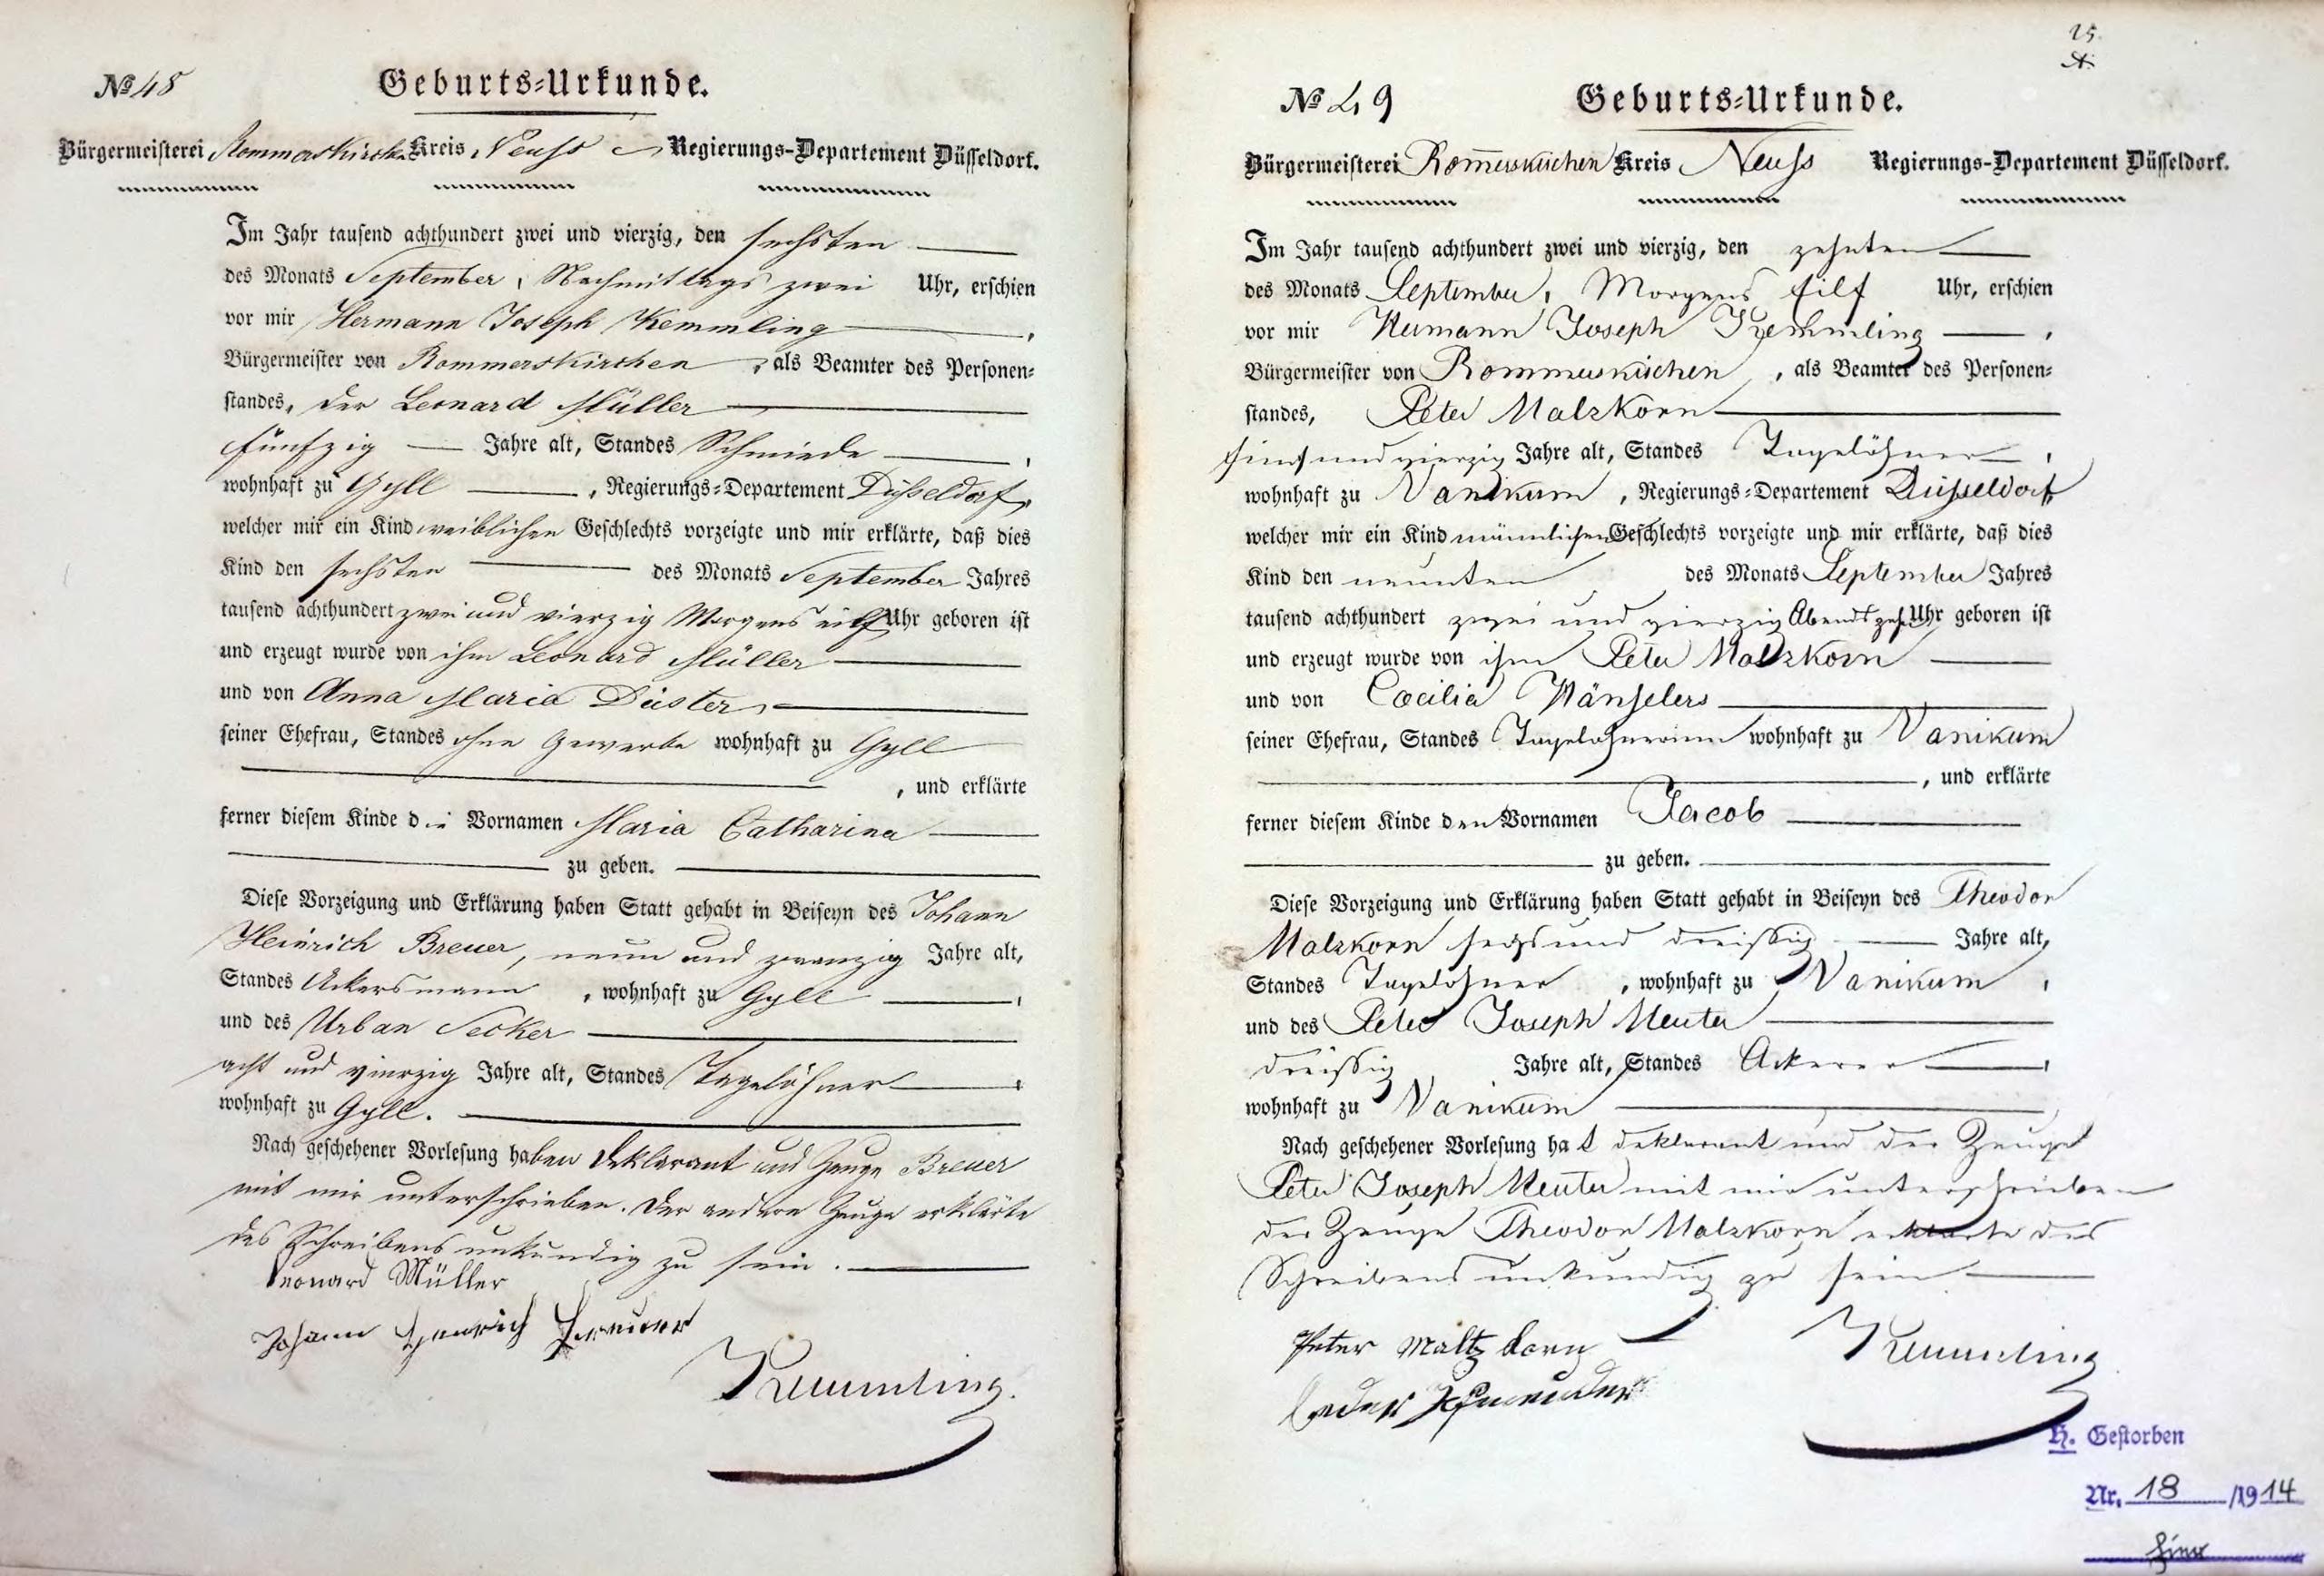 № 48
Geburts-Urkunde.
Bürgermeisterei Rommerskirchen Kreis Neuss Regierungs-Departement Düsseldorf.
Im Jahr tausend achthundert zwei und vierzig, den sechsten
des Monats September, Nachmittags zwei Uhr, erschien
vor mir Hermann Joseph Kemmling,
Bürgermeister von Rommerskirchen, als Beamter des Personen-
standes, der Leonard Müller
fünfzig Jahre alt, Standes Schmiede,
wohnhaft zu Gyll, Regierungs-Departement Düsseldorf,
welcher mir ein Kind weiblichen Geschlechts vorzeigte und mir erklärte, daß dies
Kind den sechsten des Monats September Jahres
tausend achthundert zwei und vierzig Morgens eilf Uhr geboren ist
und erzeugt wurde von ihm Leonard Müller
und von Anna Maria Düster,
seiner Ehefrau, Standes ohne Gewerbe wohnhaft zu Gyll
, und erklärte
ferner diesem Kinde die Vornamen Maria Catharina
zu geben.
Diese Vorzeigung und Erklärung haben Statt gehabt in Beiseyn des Johann
Heinrich Breuer, neun und zwanzig Jahre alt,
Standes Ackersmann, wohnhaft zu Gyll,
und des Urban Secker
acht und vierzig Jahre alt, Standes Tagelöhner,
wohnhaft zu Gyll.
Nach geschehener Vorlesung haben Deklarant und Zeuge Breuer
mit mir unterschrieben. Der andere Zeuge erklärte
des Schreibens unkundig zu sein.
Leonard Müller
Johann Henrich Breuer
Kemmling.
25.
№ 49
Geburts-Urkunde.
Bürgermeisterei Rom̄erskirchen Kreis Neuss Regierungs-Departement Düsseldorf.
Im Jahr tausend achthundert zwei und vierzig, den zehnten
des Monats September, Morgens eilf Uhr, erschien
vor mir Hermann Joseph Kemmling,
Bürgermeister von Rommerskirchen, als Beamter des Personen-
standes, Peter Malzkorn
fünf und vierzig Jahre alt, Standes Tagelöhner,
wohnhaft zu Vanikum, Regierungs-Departement Düsseldorf
welcher mir ein Kind männlichen Geschlechts vorzeigte und mir erklärte, daß dies
Kind den neunten des Monats September Jahres
tausend achthundert zwei und vierzig Abends zehn Uhr geboren ist
und erzeugt wurde von ihm Peter Malzkorn
und von Cæcilia Hänselers
seiner Ehefrau, Standes Tagelöhnerinn wohnhaft zu Vanikum
, und erklärte
ferner diesem Kinde den Vornamen Jacob
zu geben.
Diese Vorzeigung und Erklärung haben Statt gehabt in Beiseyn des Theodor
Malzkorn sechs und dreißig Jahre alt,
Standes Tagelöhner, wohnhaft zu Vanikum,
und des Peter Joseph Meuter
dreißig Jahre alt, Standes Ackerer,
wohnhaft zu Vanikum
Nach geschehener Vorlesung hat deklarant und der Zeuge
Peter Joseph Meuter mit mir unterschrieben
der Zeuge Theodor Malzkorn erklärte des
Schreibens unkundig zu sein
Peter Maltzkorn
Kemmling
H. Gestorben
Nr. 18/1914
hier